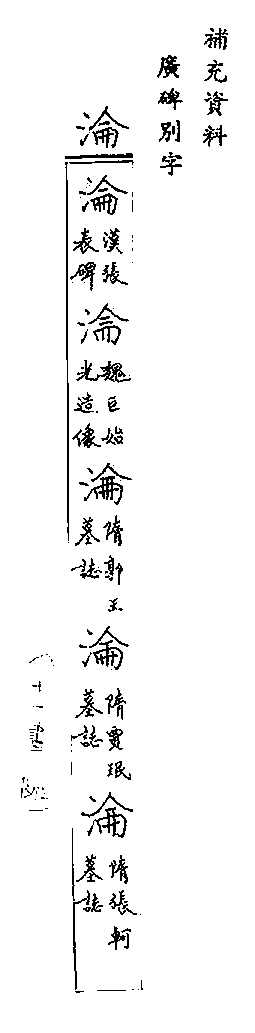 補充資料
廣碑別字
淪
淪 漢張表碑
淪 魏巨始光造像
淪 隋郭王墓誌
淪 隋賈珉墓誌
淪 隋張軻墓誌